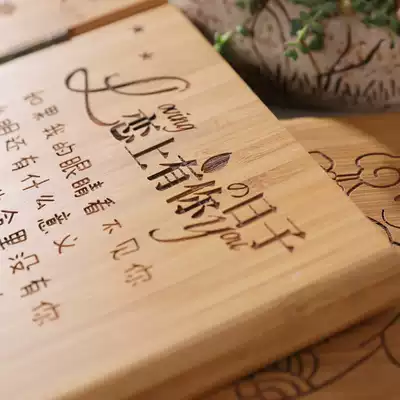 Loving
恋上有你の日子
You
如果我的眼睛看不见你
明还有什么意义
里没有你